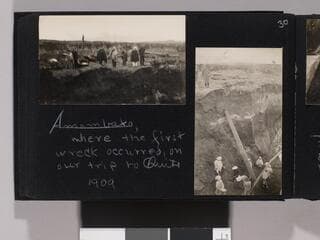 30
where the first
wreck occurred, on
our trip to
1909